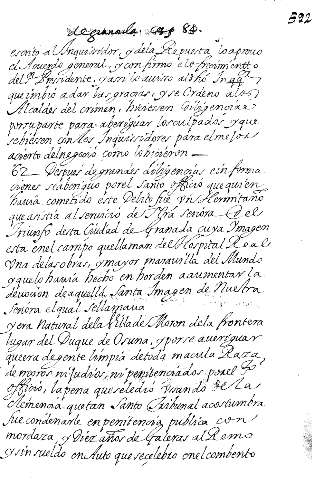 de granada. 84.
322
escrito al Inquisidor, y dela Respuesta lo aprouo
el Acuerdo general, y confirmo el
del Presidente, y assi lo auiso al
que imbió a dar las gracias, y se Ordeno a los
Alcaldes del crimen, hiciesen diligencias
por su parte para aberiguar los culpados y que
sobre los Inquisidores para el mejor
acierto del negocio como lo hicieron
62 — Despues de grandes diligencias e informa
ciones se aberiguo por el Santo officio que quien
hauia cometido este Delicto fue Vn Hermitaño
que asistia al servicio de Nra Señora del
triunfo desta Ciudad de Granada cuya Imagen
esta en el campo que llaman del Hospital Real
Vna de las obras, y mayor marauilla del Mundo
y que lo hauia hecho en horden a aumentar la
deuocion de aquella Santa Imagen de Nuestra
Señora el qual se llamaua
y era Natural dela Villa de Moron dela frontera
lugar del Duque de Osuna, y por se aueriguar
que era de gente limpia de toda macula Raza
de moros ni Judios, ni penitenciados por el Sto
officio, la pena que se le dió Vsando de la
Clemencia que tan Santo Tribunal acostumbra
fue condenarle en penitencia publica con
mordaza, y Diez años de Galeras al Remo
y sin sueldo en Auto que se celebró en el combento